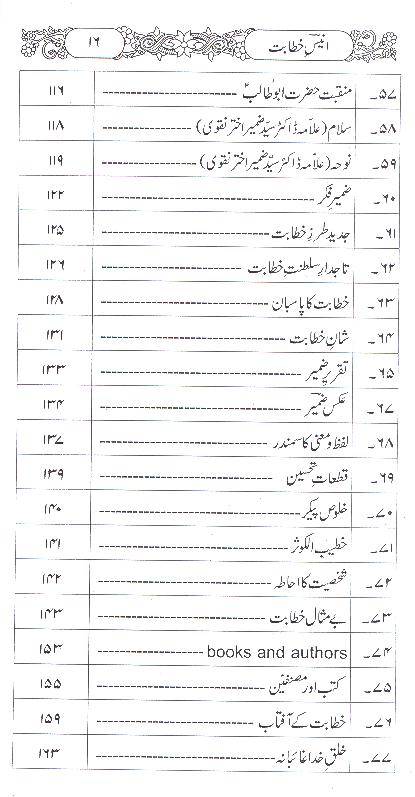 انیسِ خطابت ۱۶
۵۷۔ منقبت حضرت ابوطالبؑ ۱۱۶
۵۸۔ سلام (علامہ ڈاکٹر سیّد ضمیر اختر نقوی) ۱۱۸
۵۹۔ نوحہ (علامہ ڈاکٹر سیّد ضمیر اختر نقوی) ۱۱۹
۶۰۔ ضمیرِ فکر ۱۲۲
۶۱۔ جدید طرزِ خطابت ۱۲۵
۶۲۔ تاجدارِ سلطنتِ خطابت ۱۲۶
۶۳۔ خطابت کا پاسبان ۱۲۸
۶۴۔ شانِ خطابت ۱۳۱
۶۵۔ تقریرِ ضمیر ۱۳۳
۶۷۔ عکسِ ضمیر ۱۳۴
۶۸۔ لفظ و معنی کا سمندر ۱۳۷
۶۹۔ قطعاتِ تحسین ۱۳۹
۷۰۔ خلوص پیکر ۱۴۰
۷۱۔ خطیب الکوثر ۱۴۱
۷۲۔ شخصیت کا احاطہ ۱۴۲
۷۳۔ بے مثال خطابت ۱۴۳
۷۴۔ books and authors ۱۵۳
۷۵۔ کتب اور مصنفین ۱۵۵
۷۶۔ خطابت کے آفتاب ۱۵۹
۷۷۔ خلقِ خدا غائبانہ ۱۶۳